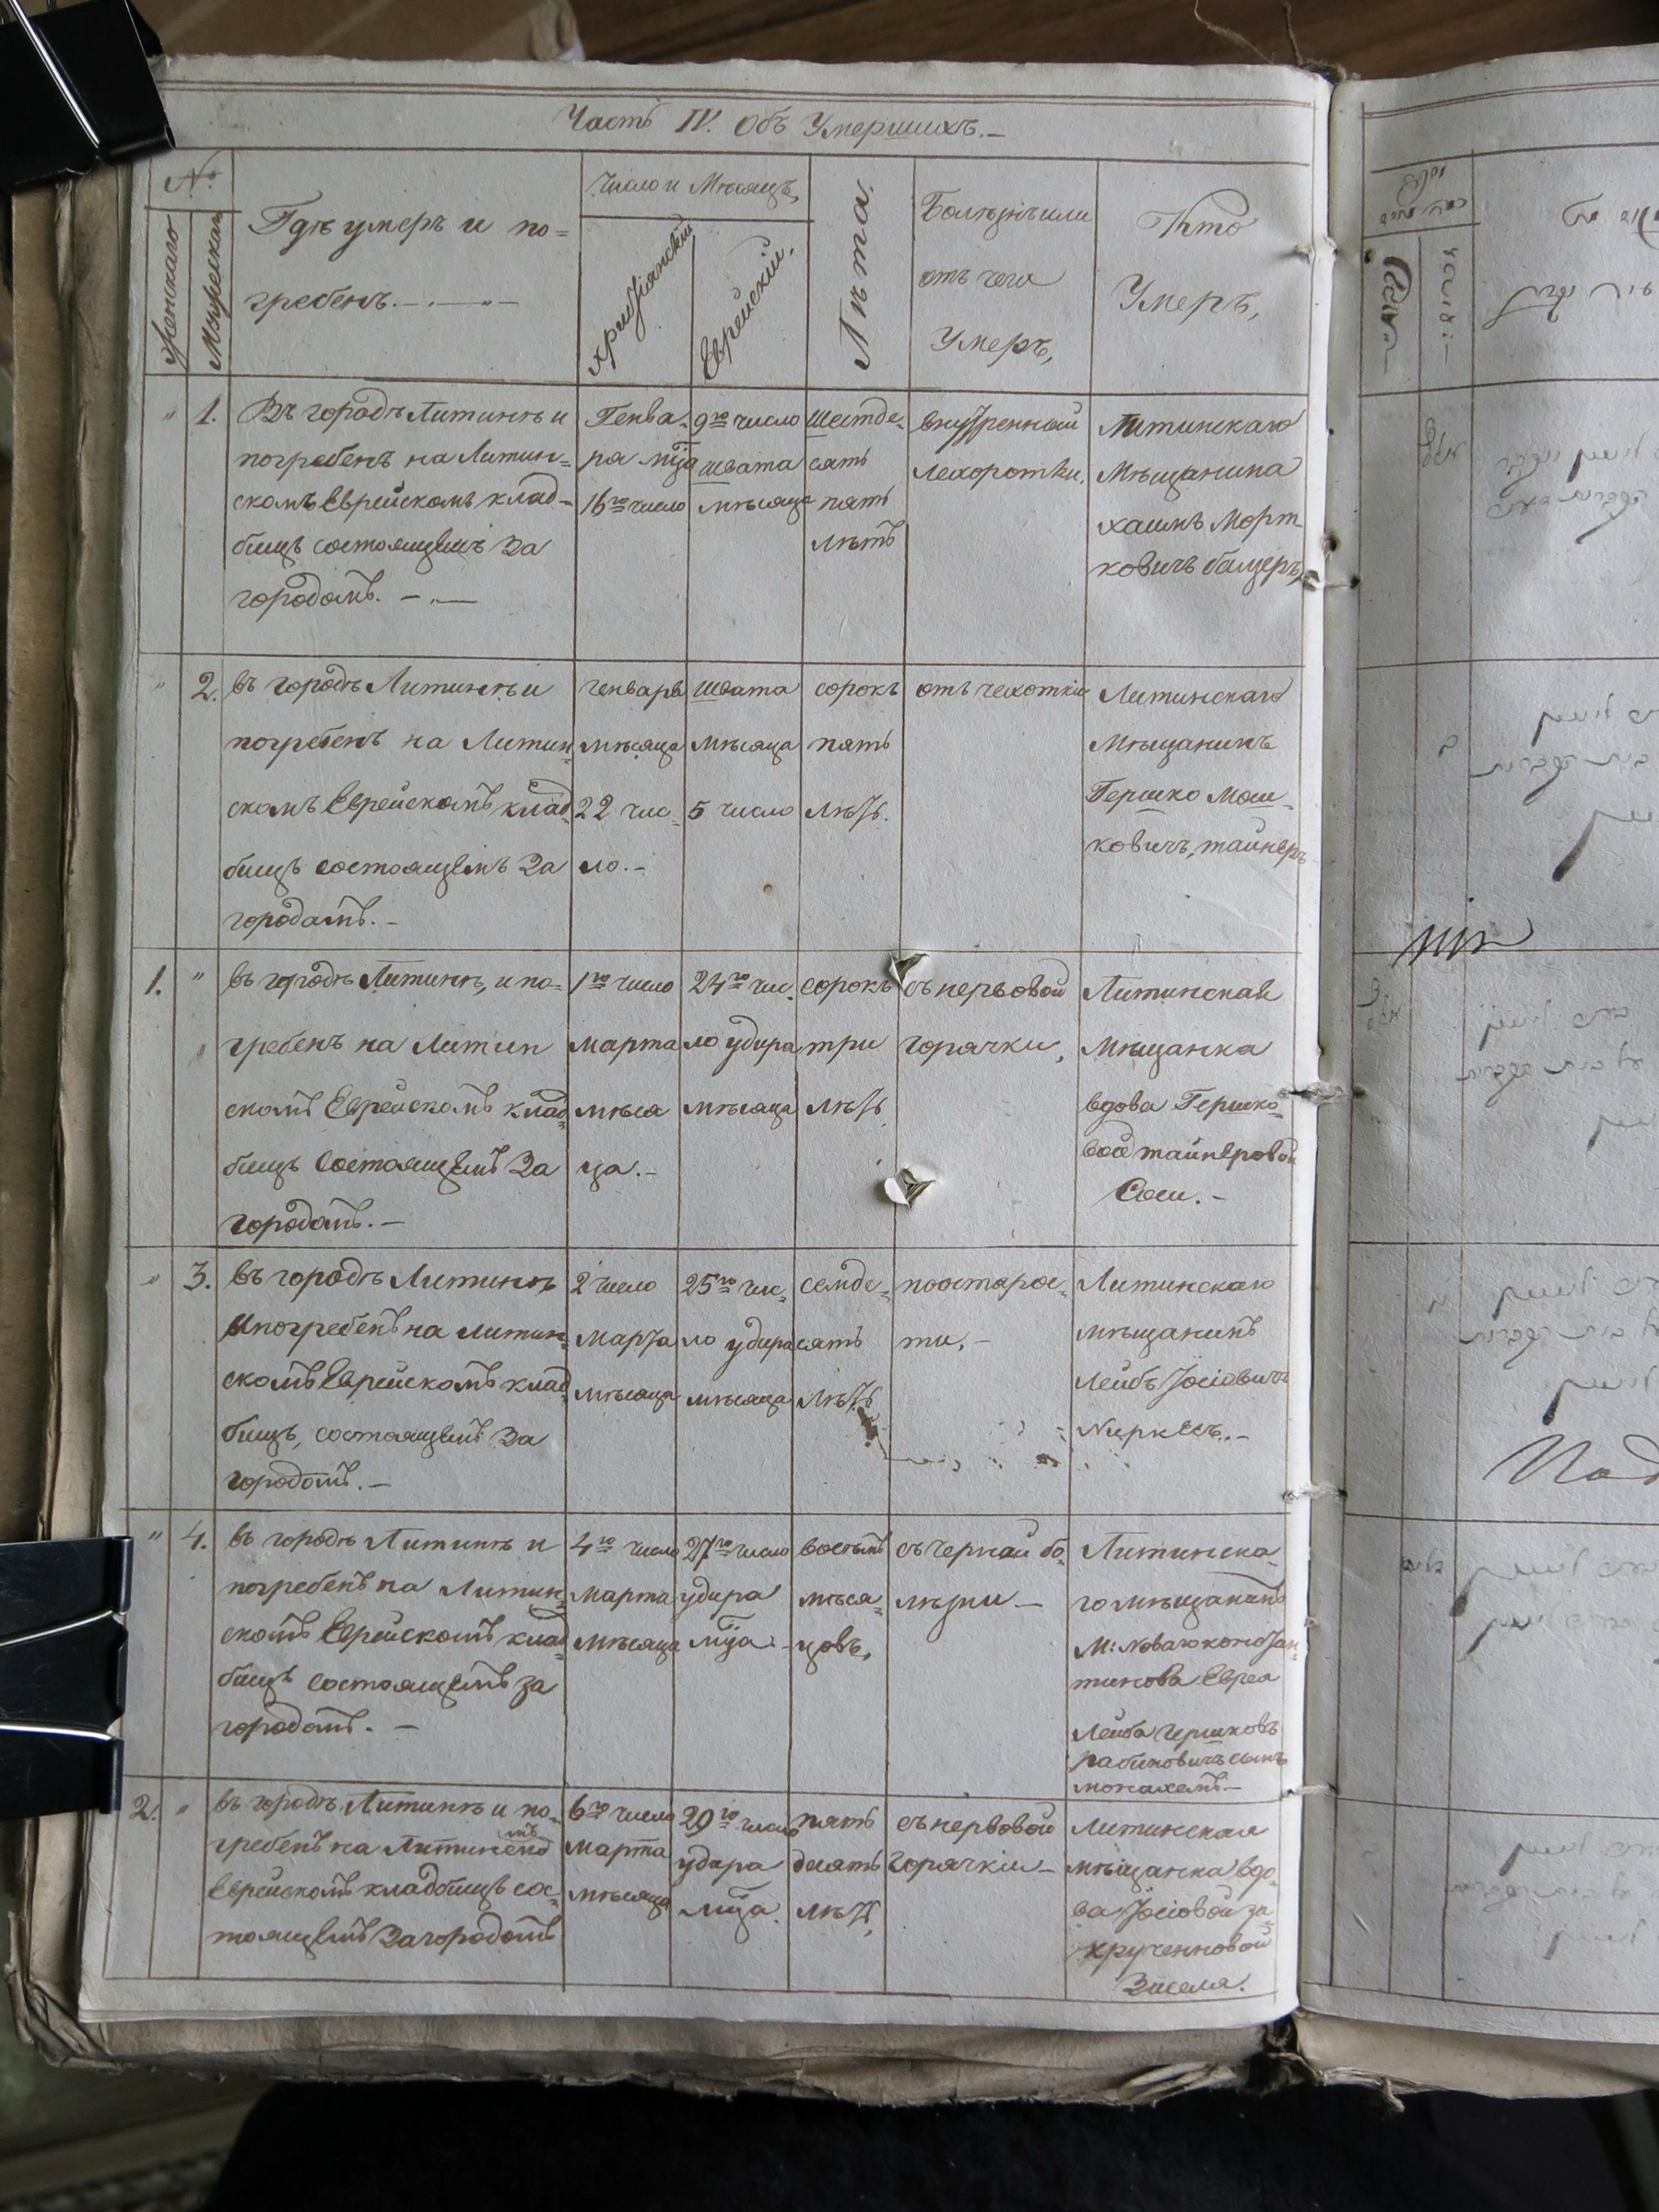 Часть IV. Объ Умершихъ.—
№
Женскаго
Мужескаго
Гдѣ умеръ и по=
гребенъ.—
Число и Мѣсяцъ,
христіянскій
Еврейскій.
Лѣта.
Болѣзнь или
отъ чего
Умеръ,
Кто
Умеръ,
" 1.
Въ городѣ Литинѣ и
погребенъ на Литин=
скомъ Еврейскомъ клад=
бищѣ состоящемъ За
городомъ. —
Генва=
ря мца
16го число
9го число
Швата
мѣсяца
Шестде=
сятъ
пять
лѣтъ
внутренной
лехоротки.
Литинскаго
Мѣщанина
хаимъ Морт
ковичъ
" 2.
въ городѣ Литинѣ и
погребенъ на Литин
скомъ Еврейскомъ клад
бищѣ состоящемъ За
городамъ. —
генваря
мѣсяца
22 чис=
ло. —
Швата
мѣсяца
5 число
сорокъ
пять
лѣтъ.
отъ чехотки
Литинскаго
Мѣщанинъ
Гершко Мош=
ковичъ, тайнеръ
1. "
въ городѣ Литинѣ, и по=
гребенъ на Литин
скомъ Еврейскомъ клад=
бищѣ состоящемъ За
городомъ. —
1го число
марта
мѣся
ца. —
24го чис
ло удира
мѣсяца
сорокъ
три
лѣтъ
съ нервовой
горячки,
Литинская
Мѣщанка
вдова Гершко=
вой тайнеровой
Соси. —
" 3.
въ городѣ Литинѣ
и погребенъ на Литин=
скомъ Еврейскомъ клад
бищѣ, состоящемъ За
городомъ. —
2 число
Марта
мѣсяца
25го чис=
ло удира
мѣсяца
семде=
сятъ
лѣтъ
по старос=
ти. —
Литинскаго
мѣщанинъ
Лейбъ Iосiовичъ
" 4.
въ городѣ Литинѣ и
погребенъ на Литин=
скомъ Еврейскомъ клад
бищѣ состоящемъ за
городомъ. —
4го число
марта
мѣсяца
27го число
удира
мца —
восьмъ
мѣся=
цовъ,
съ чернай бо=
лѣзни —
Литинска=
го мѣщанинъ
М: Новаго констан=
тинова Еврея
Лейба Гершковъ
рабиновичъ сынъ
монахемъ. —
2. "
въ городѣ Литинѣ и по=
гребенъ на Литинско
мъ
Еврейскомъ кладбищѣ сос=
тоящемъ За городомъ
6го число
марта
мѣсяца
29го число
удира
мца.
пять
десятъ
лѣтъ,
съ нервовой
горячкіи —
Литинская
мѣщанка вдо=
ва Iосiовой за=
крученновой
Зиселя.